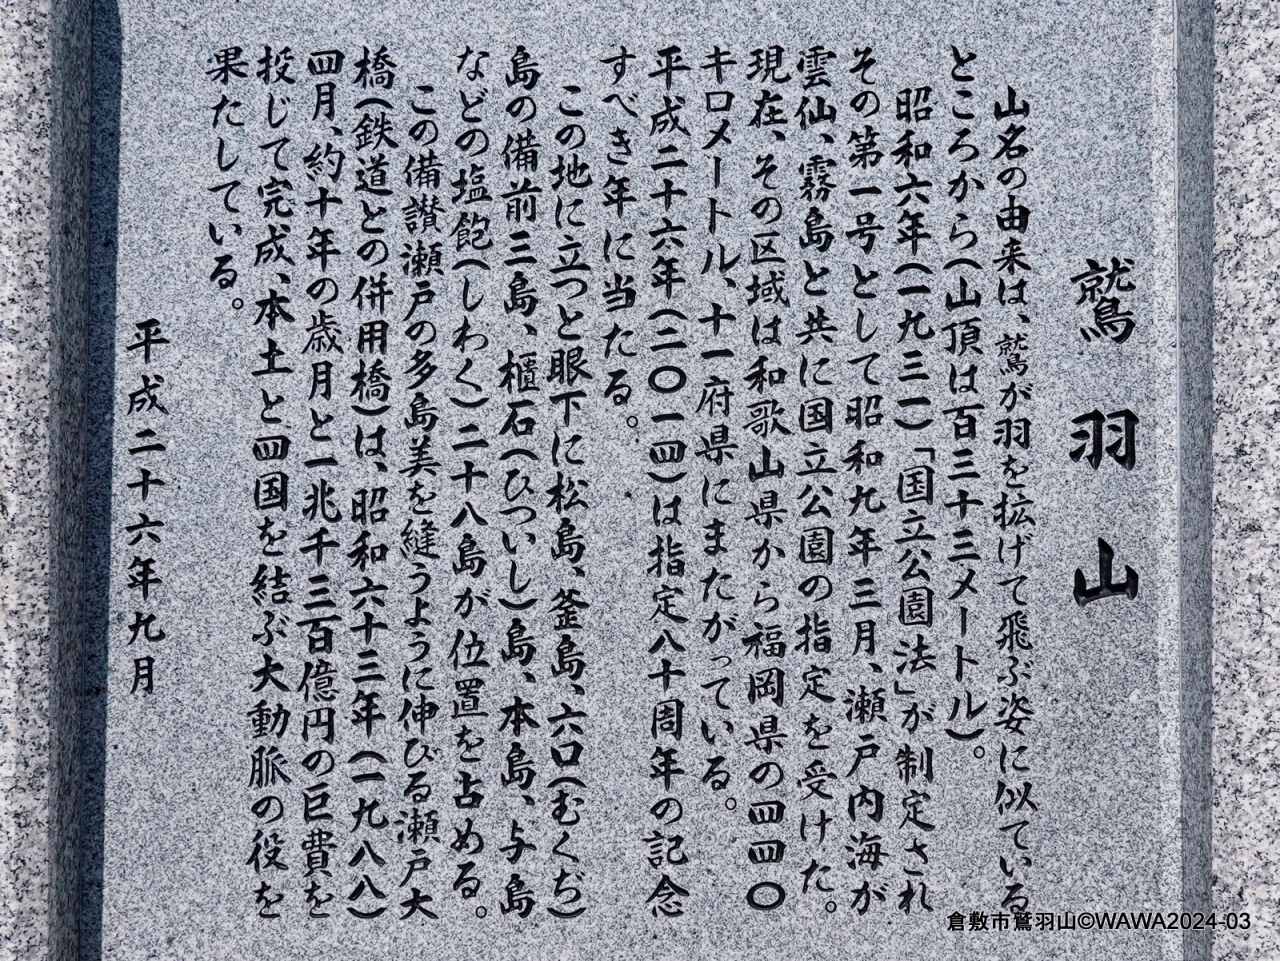 鷲羽山
山名の由来は、鷲が羽を拡げて飛ぶ姿に似ている
ところから(山頂は百三十三メートル)。
昭和六年(一九三一)「国立公園法」が制定され
その第一号として昭和九年三月、瀬戸内海が
雲仙、霧島と共に国立公園の指定を受けた。
現在、その区域は和歌山県から福岡県の四四〇
キロメートル、十一府県にまたがっている。
平成二十六年(二〇一四)は指定八十周年の記念
すべき年に当たる。
この地に立つと眼下に松島、釜島、六口(むくぢ)
島の備前三島、櫃石(ひついし)島、本島、与島
などの塩飽(しわく)二十八島が位置を占める。
この備讃瀬戸の多島美を縫うように伸びる瀬戸大
橋(鉄道との併用橋)は、昭和六十三年(一九八八)
四月、約十年の歳月と一兆千三百億円の巨費を
投じて完成、本土と四国を結ぶ大動脈の役を
果たしている。
平成二十六年九月
倉敷市鷲羽山©WAWA2024-03